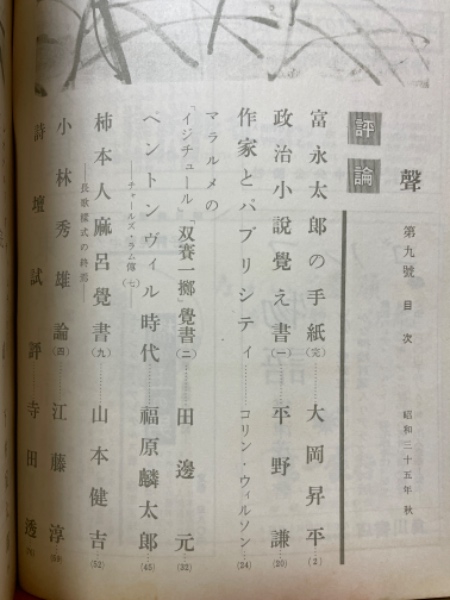 聲 第九號 目次 昭和三十五年 秋
評論
富永太郎の手紙(完)……大岡昇平(2)
政治小說覺え書(一)……平野謙(20)
作家とパブリシティ……コリン・ウィルソン(24)
マラルメの
「イジチュール」「双賽一擲」覺書(二)……田邊元(32)
ペントンヴィル時代……福原麟太郎(45)
——チャールズ・ラム傳(七)——
柿本人麻呂覺書(九)……山本健吉(52)
——長歌樣式の終焉——
小林秀雄論(四)……江藤淳(59)
詩壇試評……寺田透